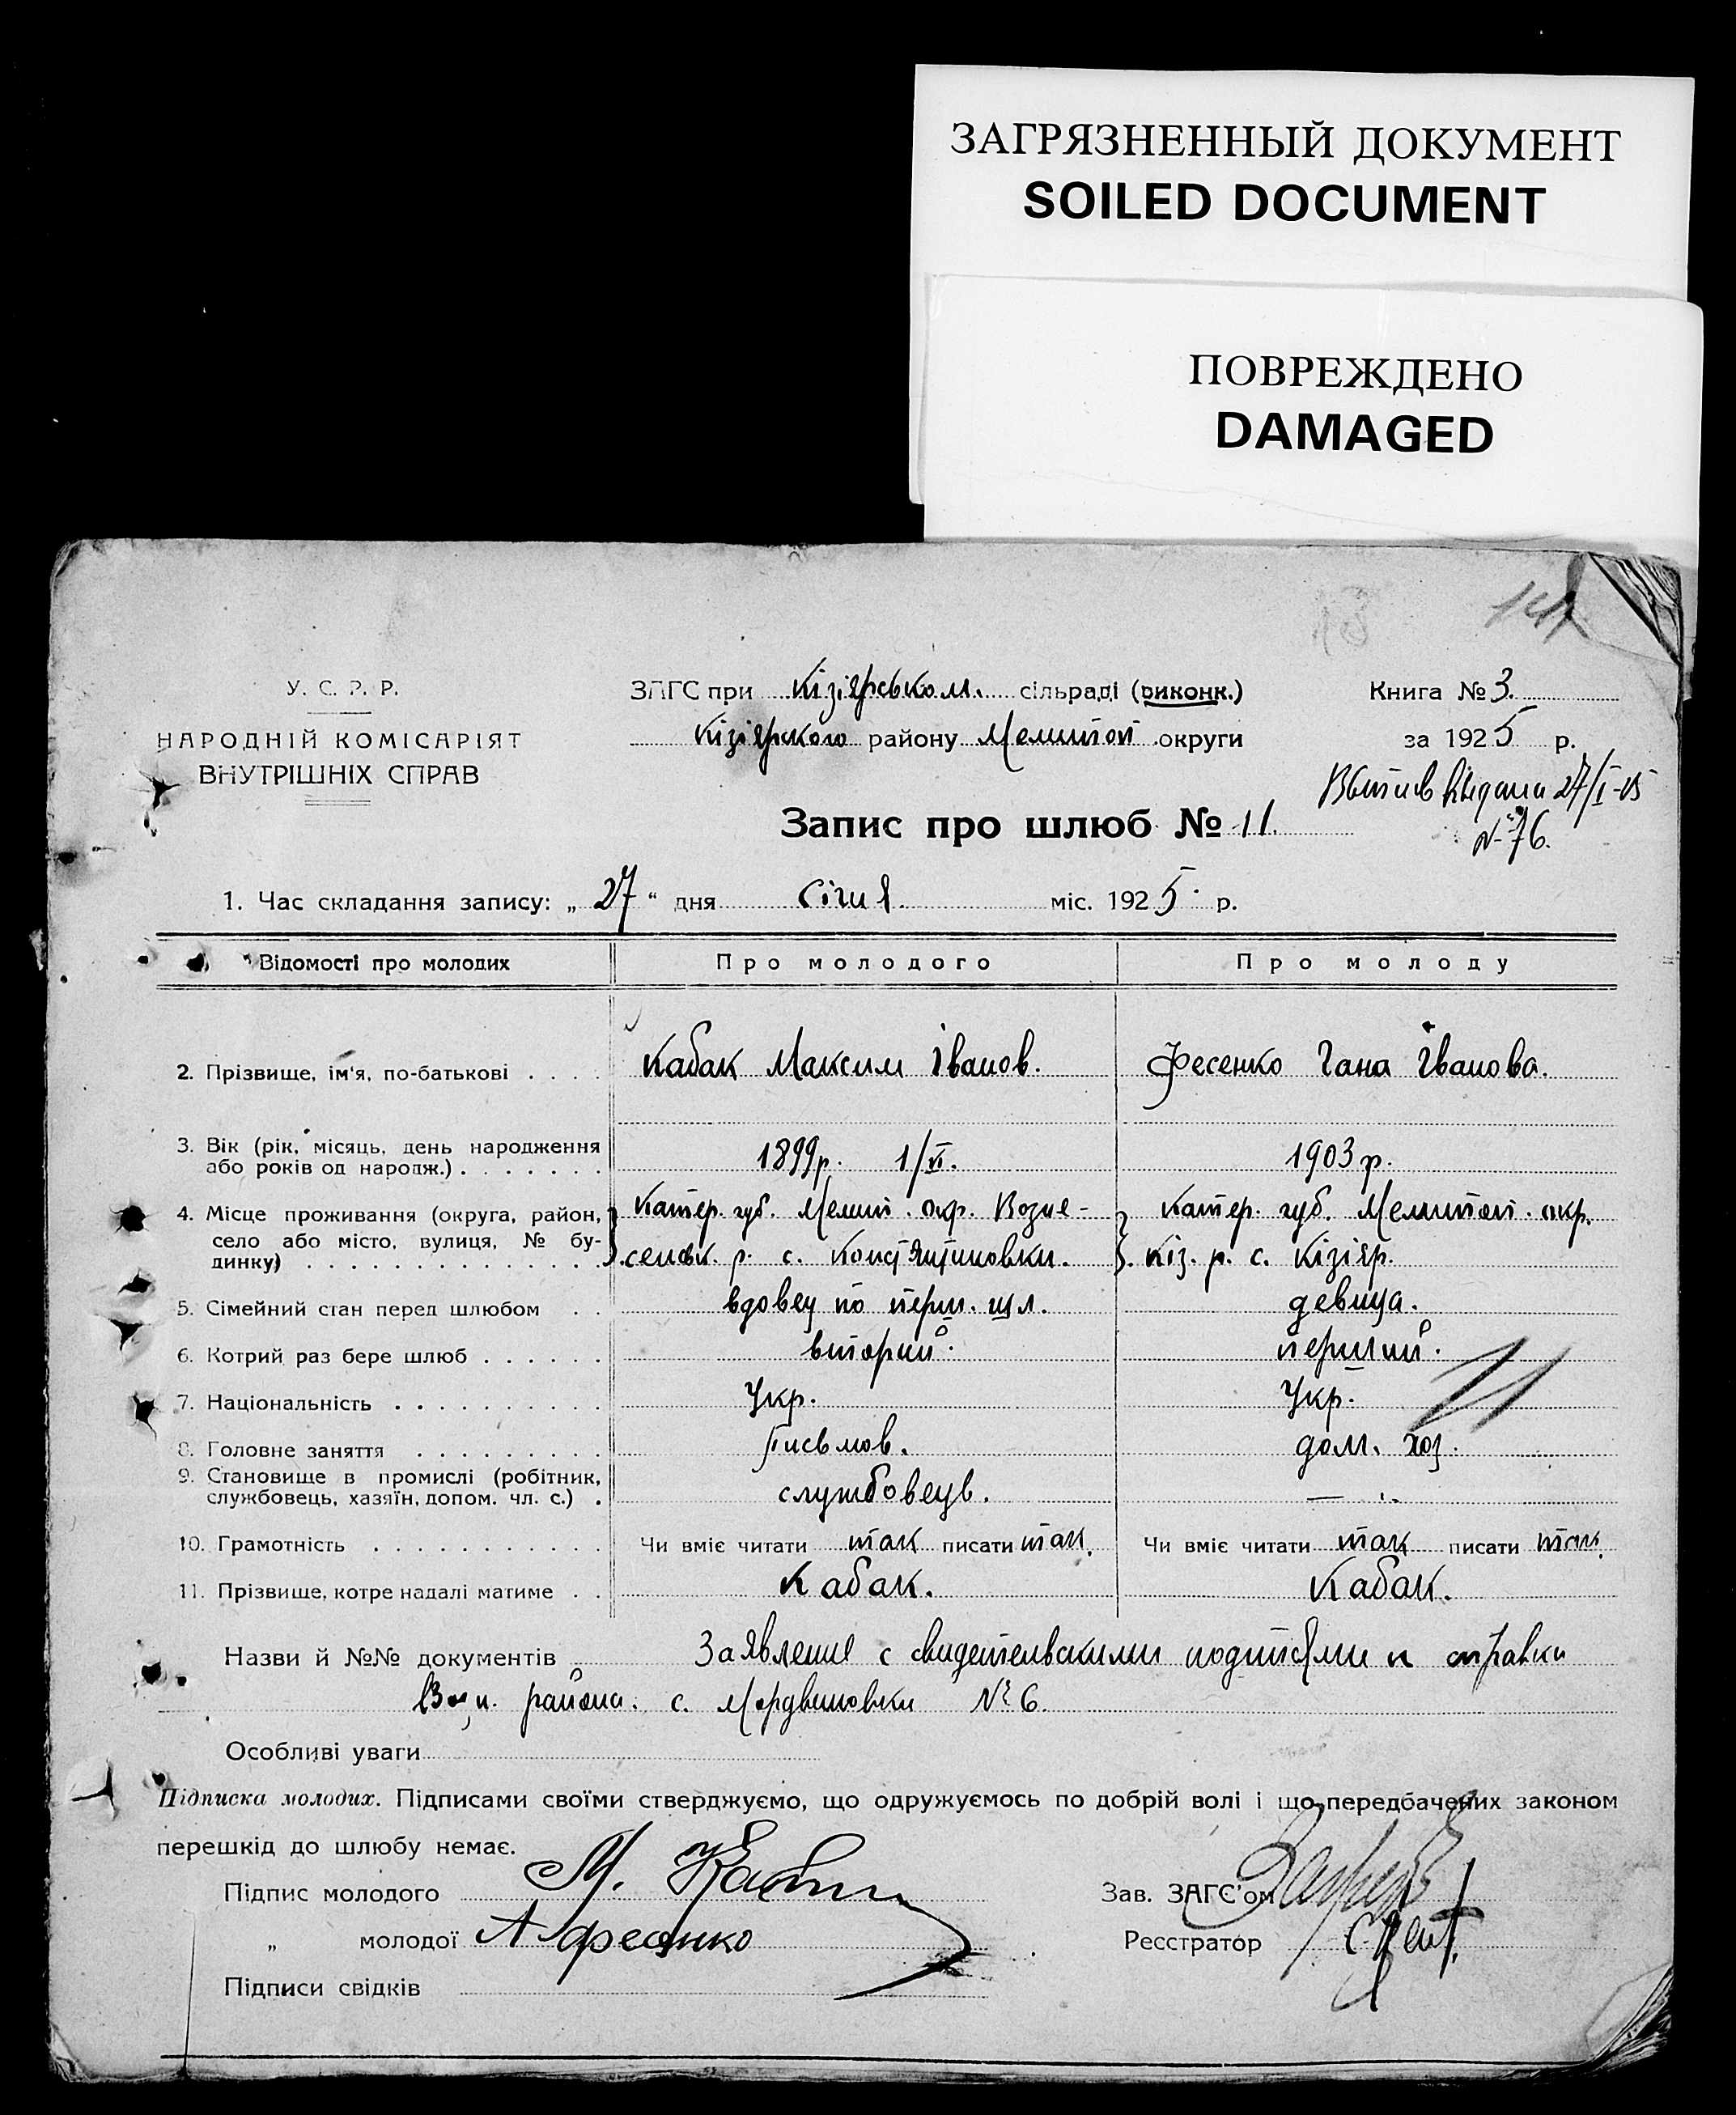 ЗАГРЯЗНЕННЫЙ ДОКУМЕНТ
SOILED DOCUMENT
ПОВРЕЖДЕНО
DAMAGED
У. С. Р. Р.
НАРОДНІЙ КОМІСАРІЯТ
ВНУТРІШНІХ СПРАВ
ЗАГС при Кізіярськом. сільраді (виконк.)
Кізіярского району Мелитоп округи
Книга № 3.
за 1925 р.
27/I-25
№ 76.
Запис про шлюб № 11.
1. Час складання запису: „ 27 “ дня Січня. міс. 1925 р.
Відомості про молодих Про молодого Про молоду
2. Прізвище, ім'я, по-батькові . . . . Кабак Максим Іванов. Фесенко Гана Іванова.
3. Вік (рік, місяць, день народження
або років од народж.) . . . . . . . 1899р. 1/VI. 1903 р.
4. Місце проживання (округа, район, Катер. губ. Мелит. окр. Возне- Катер. губ. Мелитоп. окр.
село або місто, вулиця, № бу- сенськ. р. с. Константиновки. Кіз. р. с. Кізіяр.
динку) . . . . . . . . . . . . . .
5. Сімейний стан перед шлюбом . . вдовец по перш. шл. девица.
6. Котрий раз бере шлюб . . . . . . вторий. перший.
7. Національність . . . . . . . . . . Укр. Укр.
8. Головне заняття . . . . . . . . . Письмов. дом. хоз.
9. Становище в промислі (робітник,
службовець, хазяїн, допом. чл. с.) . службовець. —
10. Грамотність . . . . . . . . . . . Чи вміє читати так писати так. Чи вміє читати так писати так.
11. Прізвище, котре надалі матиме . . Кабак. Кабак.
Назви й №№ документів Заявление с свидетельскими подписями и справки
района. с. Мордвиновки № 6.
Особливі уваги
Підписка молодих. Підписами своїми стверджуємо, що одружуємось по добрій волі і що передбачених законом
перешкід до шлюбу немає.
Підпис молодого М. Кабак
Зав. ЗАГС'ом
„ молодої А Фесенко
Реєстратор
Підписи свідків